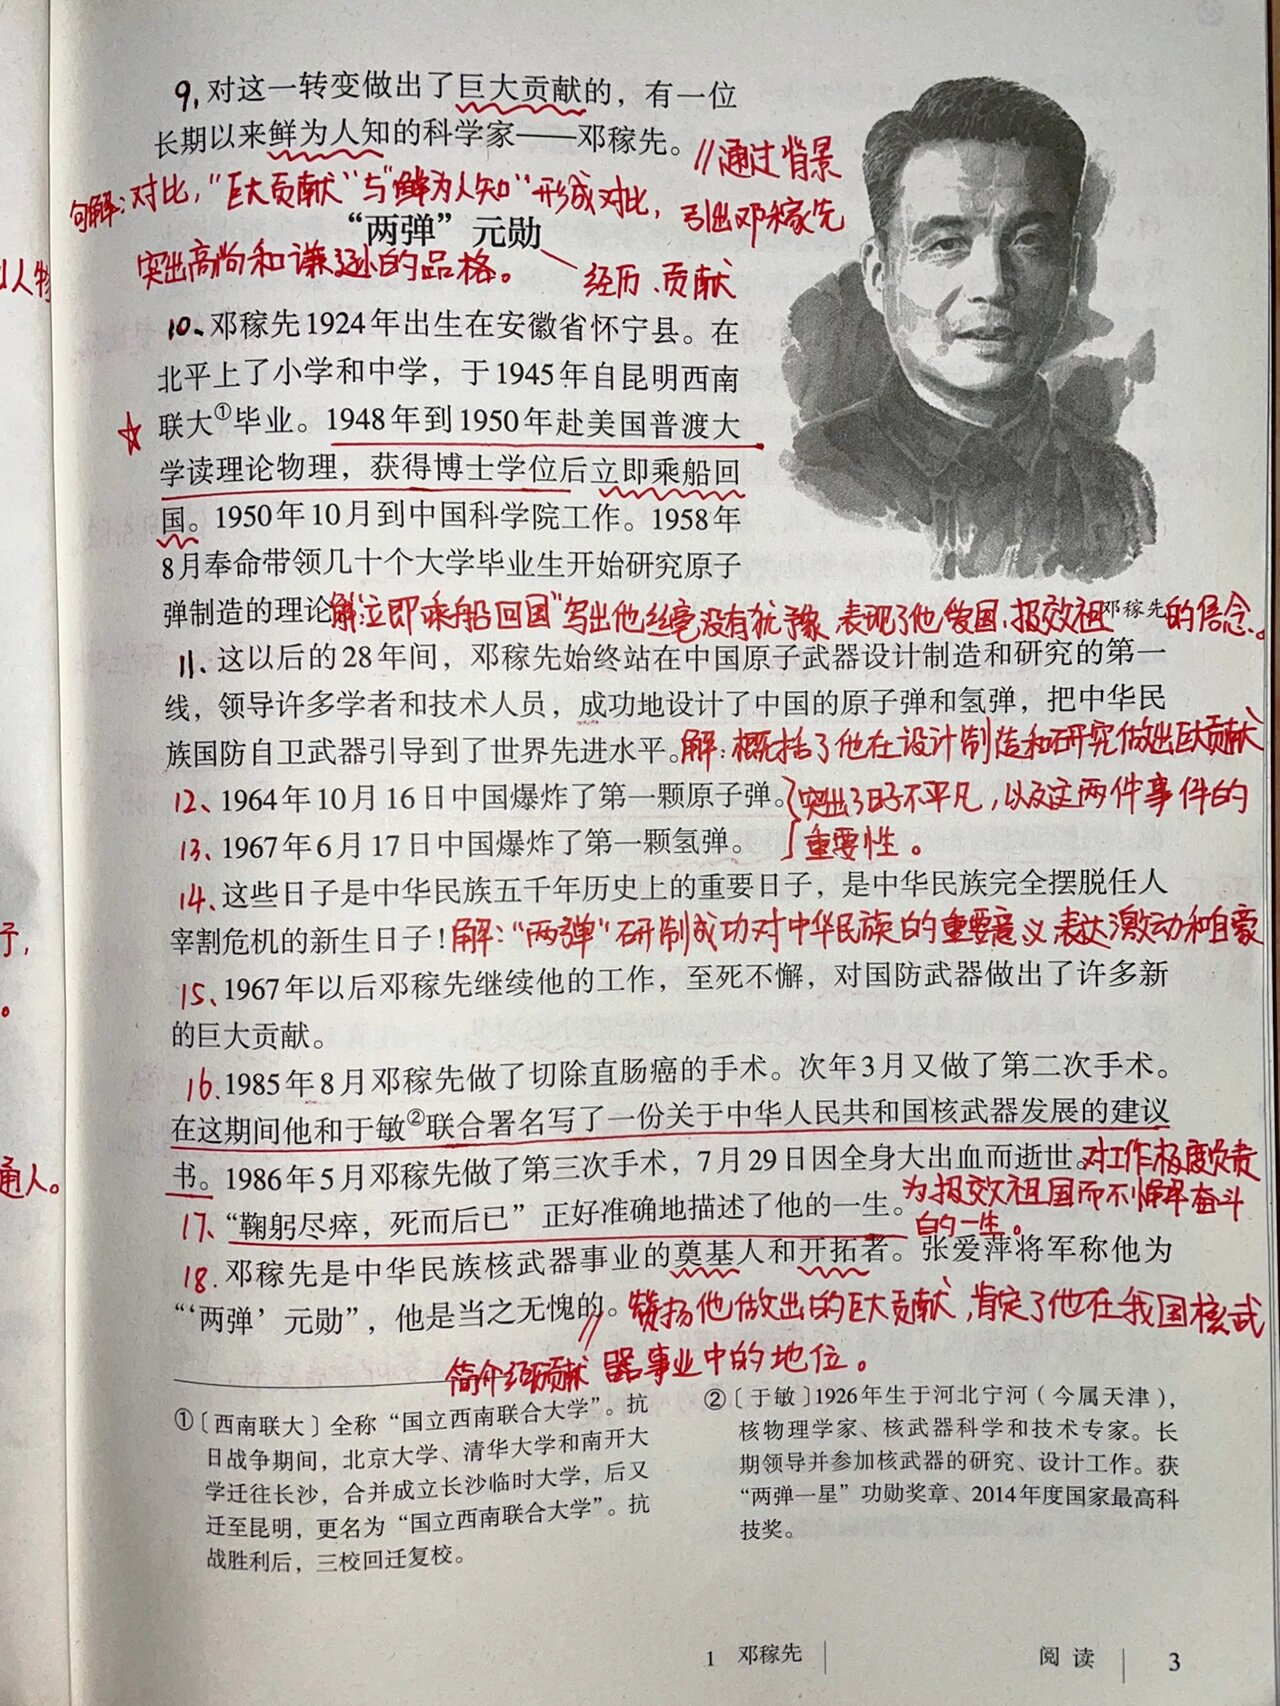 9, 对这一转变做出了巨大贡献的，有一位
长期以来鲜为人知的科学家——邓稼先。 //通过背景
引出邓稼先
句解：对比，“巨大贡献”与“鲜为人知”形成对比，
突出高尚和谦逊的品格。
“两弹”元勋
经历、贡献
10、邓稼先1924年出生在安徽省怀宁县。在
北平上了小学和中学，于1945年自昆明西南
联大①毕业。1948年到1950年赴美国普渡大
学读理论物理，获得博士学位后立即乘船回
国。1950年10月到中国科学院工作。1958年
8月奉命带领几十个大学毕业生开始研究原子
弹制造的理论
解“立即乘船回国”写出他丝毫没有犹豫，表现了他爱国、报效祖 的信念。
邓稼先
11、这以后的28年间，邓稼先始终站在中国原子武器设计制造和研究的第一
线，领导许多学者和技术人员，成功地设计了中国的原子弹和氢弹，把中华民
族国防自卫武器引导到了世界先进水平。解：概括了他在设计制造和研究做出巨大贡献
12、1964年10月16日中国爆炸了第一颗原子弹。
13、1967年6月17日中国爆炸了第一颗氢弹。
突出了日子不平凡，以及这两件事件的
重要性。
14、这些日子是中华民族五千年历史上的重要日子，是中华民族完全摆脱任人
宰割危机的新生日子！解：“两弹”研制成功对中华民族的重要意义 表达激动和自豪
15、1967年以后邓稼先继续他的工作，至死不懈，对国防武器做出了许多新
的巨大贡献。
16.1985年8月邓稼先做了切除直肠癌的手术。次年3月又做了第二次手术。
在这期间他和于敏②联合署名写了一份关于中华人民共和国核武器发展的建议
书。1986年5月邓稼先做了第三次手术，7月29日因全身大出血而逝世。对工作极度负责
17、“鞠躬尽瘁，死而后已”正好准确地描述了他的一生。为报效祖国而不懈奋斗
的一生。
18.邓稼先是中华民族核武器事业的奠基人和开拓者。张爱萍将军称他为
“‘两弹’元勋”，他是当之无愧的。赞扬他做出的巨大贡献，肯定了他在我国核武
器事业中的地位。
//
简介经历贡献
①〔西南联大〕全称“国立西南联合大学”。抗
日战争期间，北京大学、清华大学和南开大
学迁往长沙，合并成立长沙临时大学，后又
迁至昆明，更名为“国立西南联合大学”。抗
战胜利后，三校回迁复校。
②〔于敏〕1926年生于河北宁河（今属天津），
核物理学家、核武器科学和技术专家。长
期领导并参加核武器的研究、设计工作。获
“两弹一星”功勋奖章、2014年度国家最高科
技奖。
人物
通人。
1 邓稼先
阅读 3